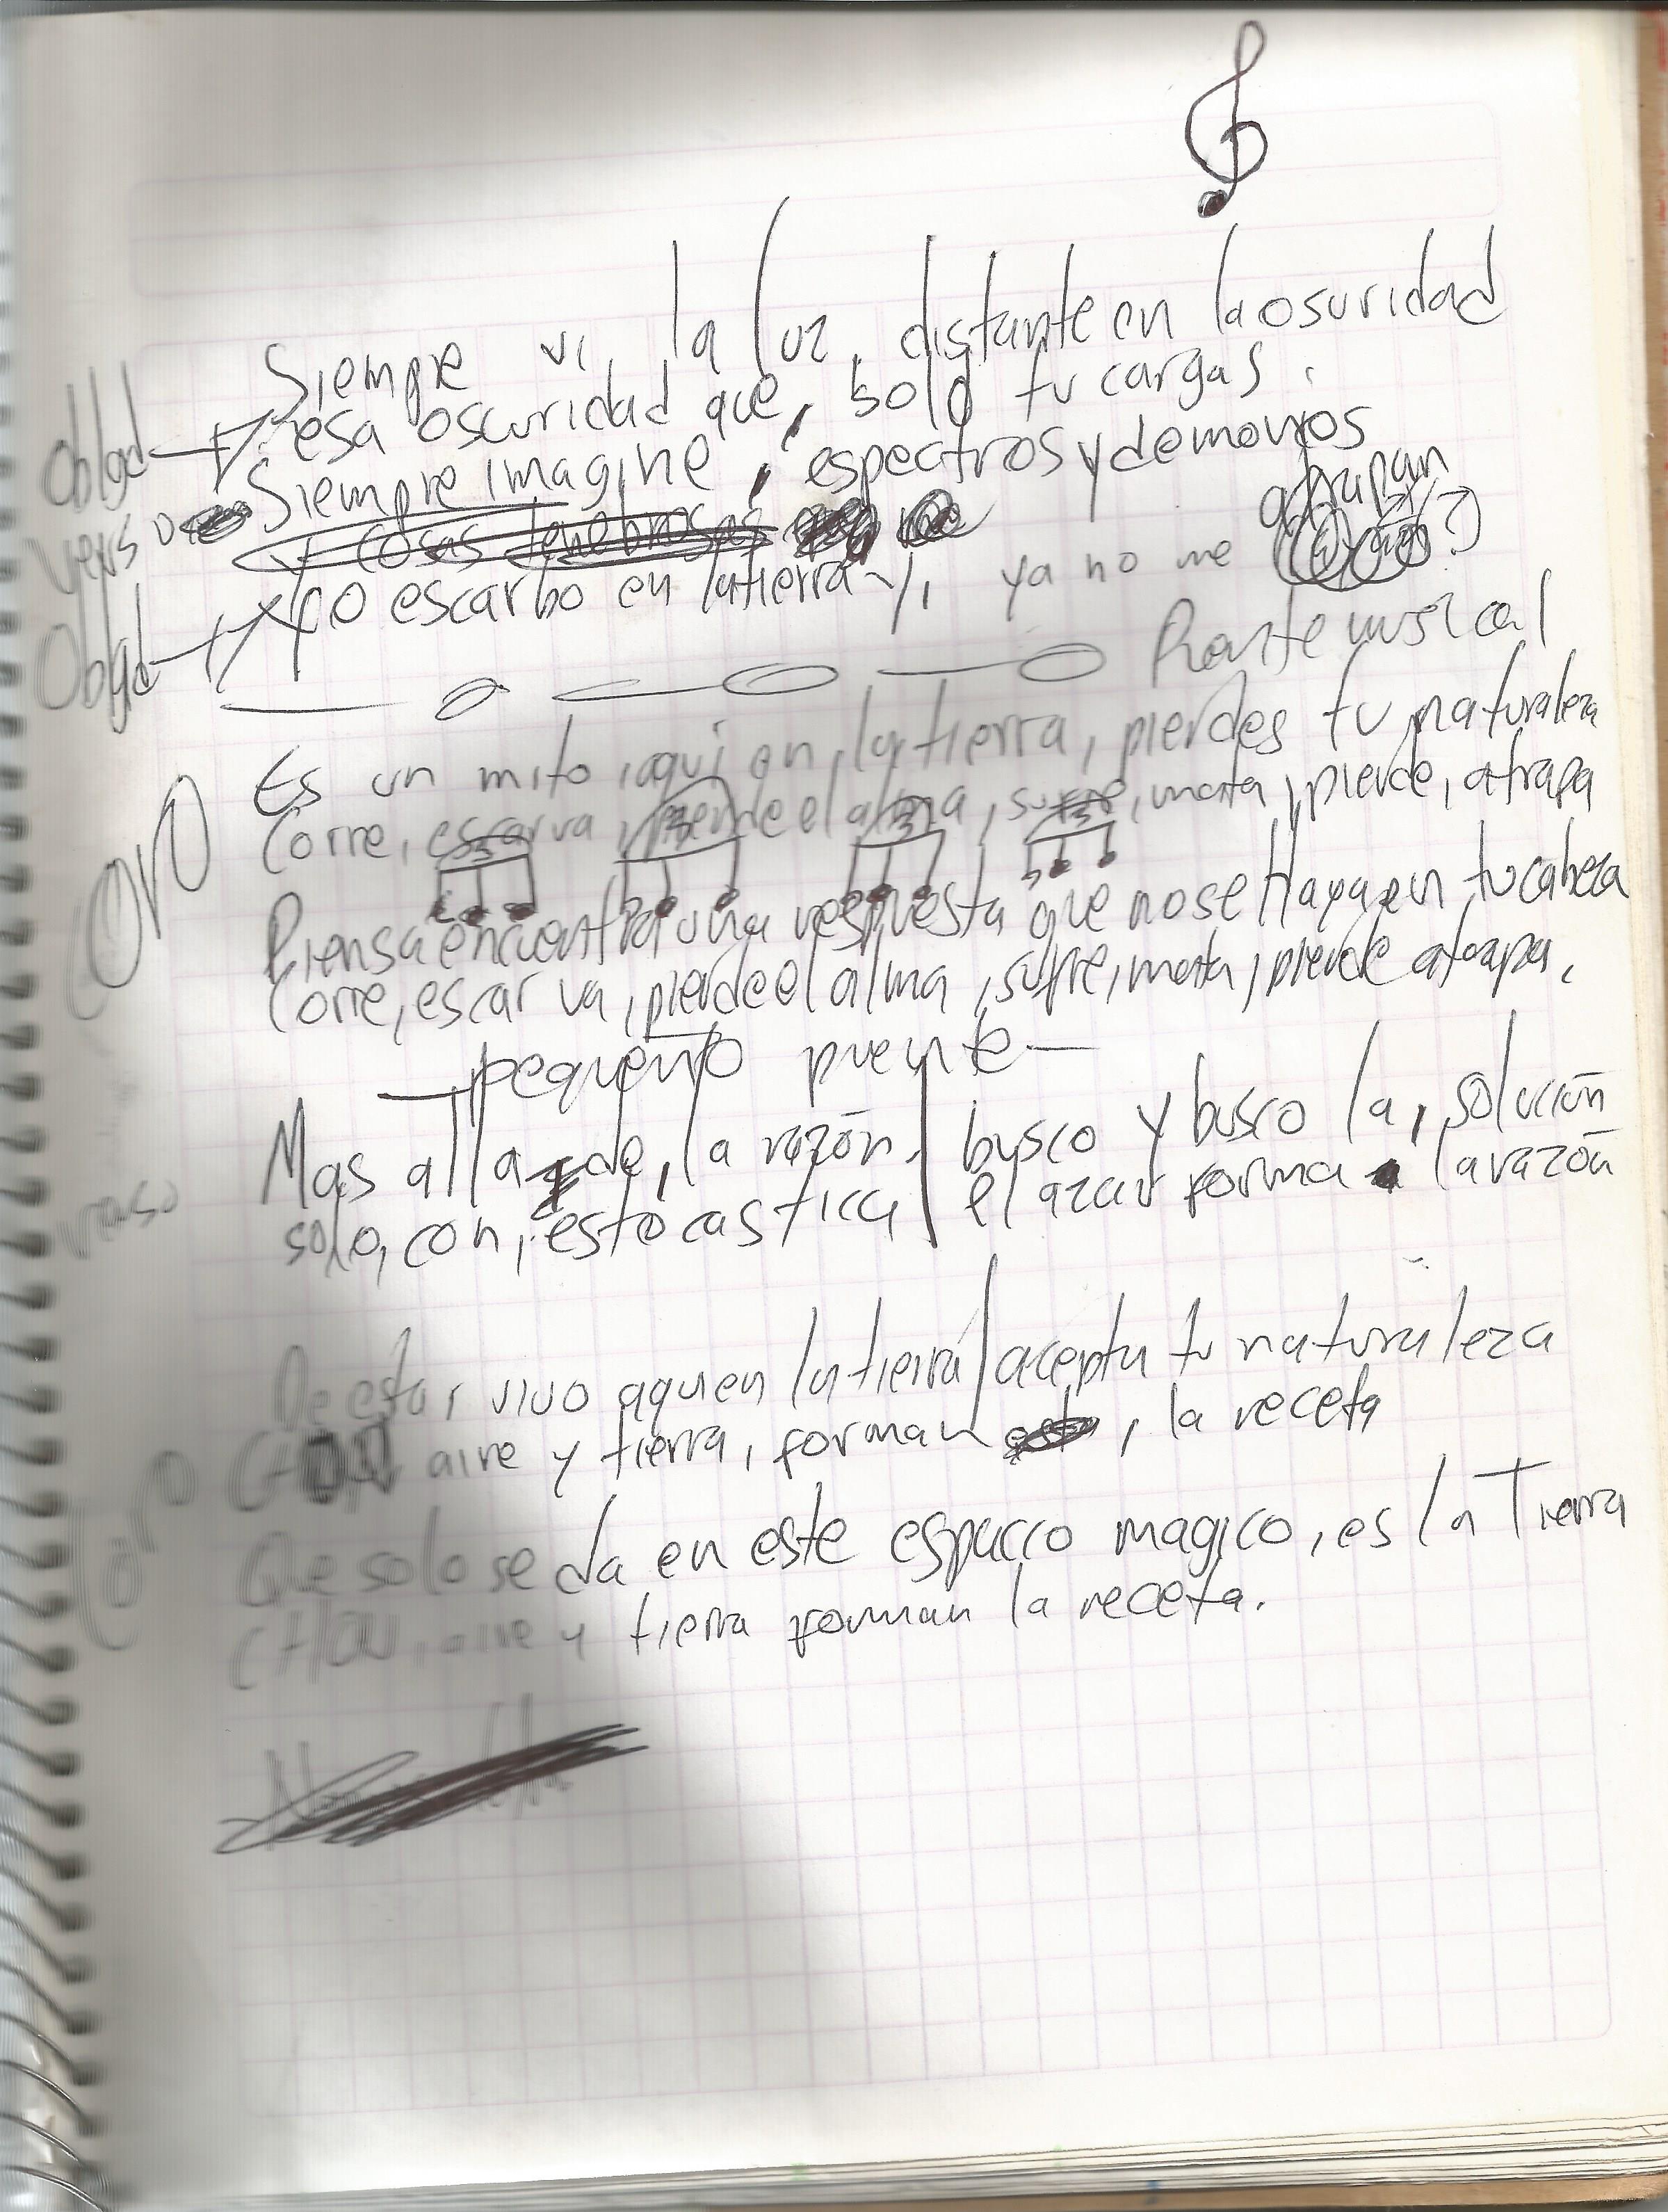 Siempre vi la luz, distante en la osuridad
oblgd → esa oscuridad que, solo tu cargas.
verso Siempre imagine, espectros y demonios
y cosas tenebrosas
atrapan
Oblgd → Yo escarbo en la tierra y, ya no me (?)
Puente musical
Es un mito, aqui en, la tierra, pierdes tu naturaleza
Coro
Corre, escarva, pierde el alma, sufre, mata, pierde, atrapa
3 3 3 3
Piensa encuentra una respuesta que no se Haya en tu cabeza
Corre, escarva, pierde el alma, sufre, mata, pierde atrapa.
— pequeño puente —
Mas alla de, la razón. / busco y busco la, solución
verso
solo, con, estocastica / el azar forma la razón
De estar vivo aqui en la tierra / acepta tu naturaleza
Coro
CHON aire y tierra, forman, la receta
Que solo se da en este espacio magico, es la Tierra
CHON, aire y tierra forman la receta.